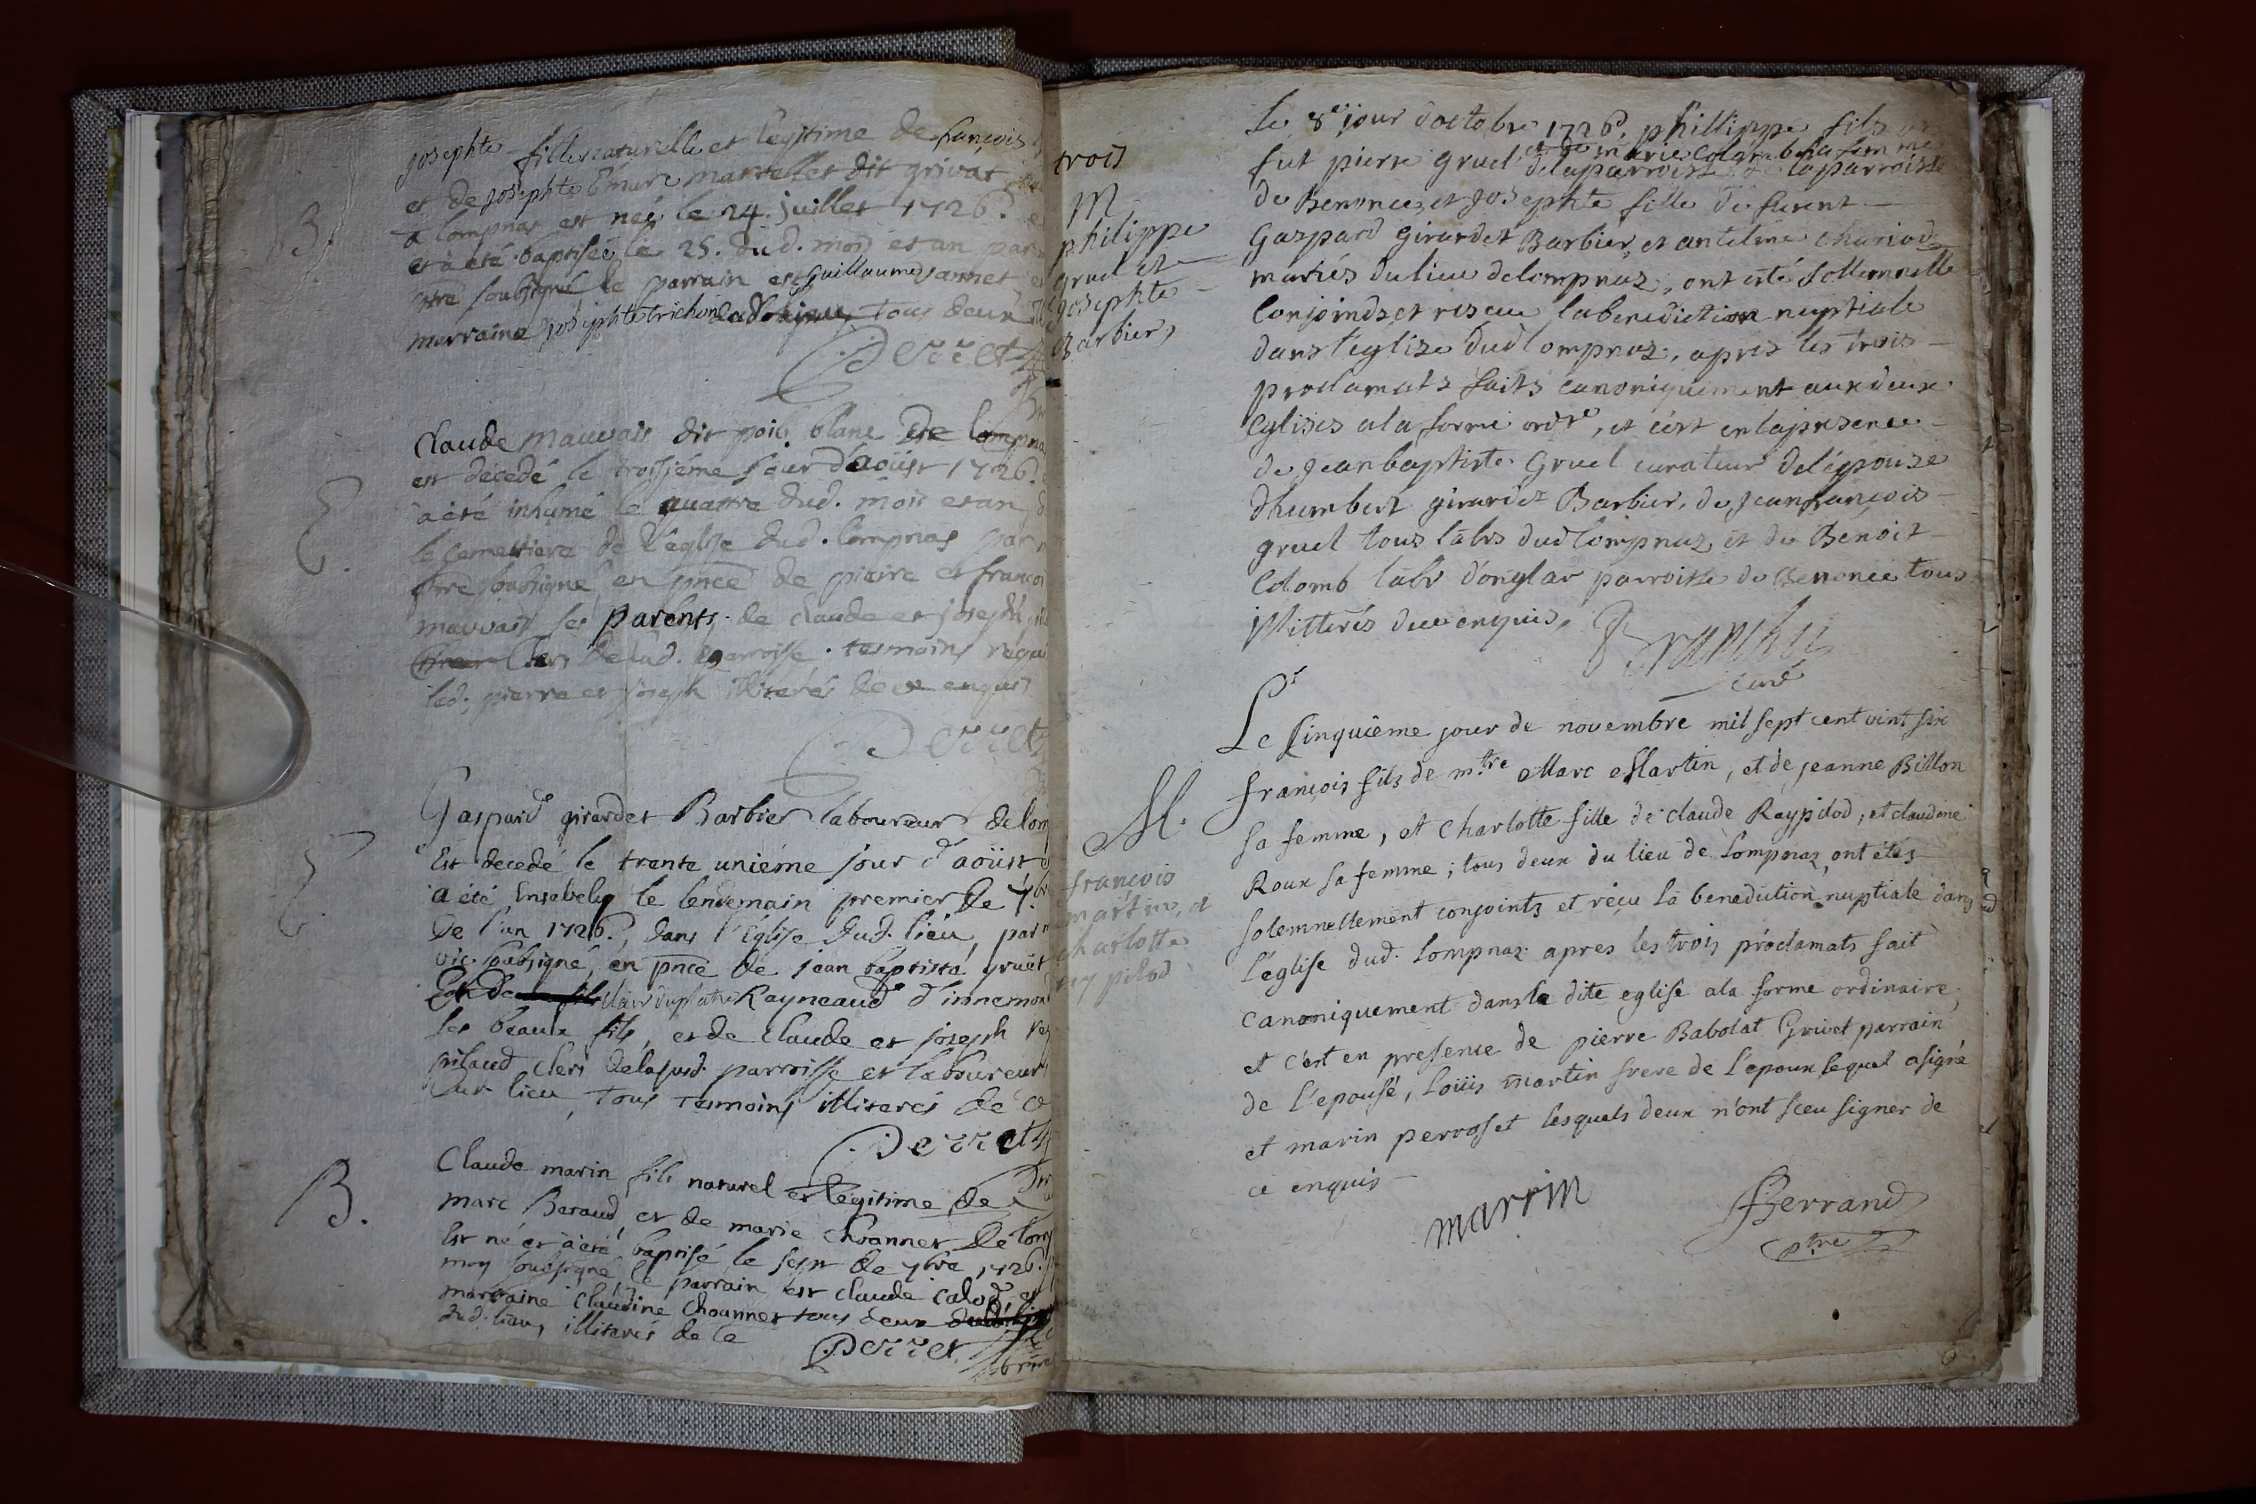 josephte fille naturelle et legitime de françois
et de josephte Emure marcellet dit grivat
a lompnas est neé le 24. juillet 1726.
et à été baptisée le 25. dud. mois et an par
ptre soubsigné le parrain est guillaume Jannet
marraine josephte trichon tous deux
Perret
B.
Claude mauvais dit poic blanc de lompnas
est décedé le troisiéme jour d'aoüst 1726.
a été inhumé le quatre dud. mois et an
le cemettiere de l'église dud. lompnas par
ptre soubsigné en pnce de pierre et françois
mauvais ses parents. de claude et joseph
clers de lad. parroisse. tesmoins requis
led. pierre et joseph illiterés de ce enquis
Perret
Gaspard girardet Barbier laboureur de lom
Est decedé le trente uniéme jour d'aoüst
a été Ensebely le lendemain premier de 7bre
De l'an 1726., dans l'Eglise dud. lieu, par
vic. soubsigné, en pnce de jean baptiste gruët
Et de Clair duplatre Rayneaud d'innemond
ses beaux fils, et de Claude et joseph rey
pilaud clers de lasusd. parroisse et laboureurs
dud. lieu, tous tesmoins illiterés de ce
Perret
B.
Claude marin fils naturel et legitime de
marc Baraud, et de marie choannet de lomp
Est né et à été baptisé le sept de 7bre 1726.
moy soubsigné, le parrain est claude calod, et
marraine claudine Choannet tous deux
dud. lieu, illiterés de ce
Perret
trois
M
philippe
gruel et
josephte
Barbier,
Le 8e jour doctobre 1726. phillippe fils
fut pierre gruel et de marie colomb sa femme
de la parroisse
de Benonce, et josephte fille de furent
Gaspard girardet Barbier, et antelme chariod
mariés du lieu de lompnaz, ont esté sollemnelle
Conjoinds et reseu la benediction nuptiale
dans l'eglize dud lompnaz, apres les trois
proclamats faits canoniquement aux deux
Eglises a la forme ordre, et c'est en la presence
de jean baptiste Gruel curateur de l'épouze
dhumbert girardet Barbier, de jean françois
gruel tous labrs dud lompnaz, et de Benoit
Colomb labr d'onglar parroisse de Benonce tous
illitterés de ce enquis,
curé
Le Cinquiême jour de novembre mil sept cent vint six
M.
françois
martin, et
charlotte
rey pilod
françois fils de mtre Marc Martin, et de jeanne Billon
sa femme, et Charlotte fille de claude Raypilod, et claudine
Roux sa femme; tous deux du lieu de Lompnaz, ont étés
solemnellement conjoints et reçu la benediction nuptiale dans
l'église dud. Lompnaz apres les trois proclamats fait
canoniquement dans la dite eglise a la forme ordinaire,
et c'est en presence de pierre Babolat Grivet parrain
de l'epousé, Loüis martin frere de l'epoux lequel a signé
et marin perroset lesquels deux n'ont sceu signer de
ce enquis
martin
Ferrand
ptre